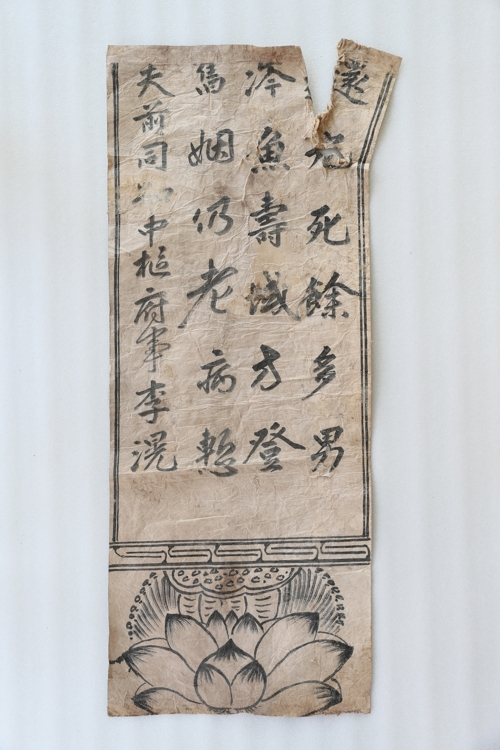 還死餘多男
魚壽域方登
姻仍老病慙
夫前同知中樞府事李滉